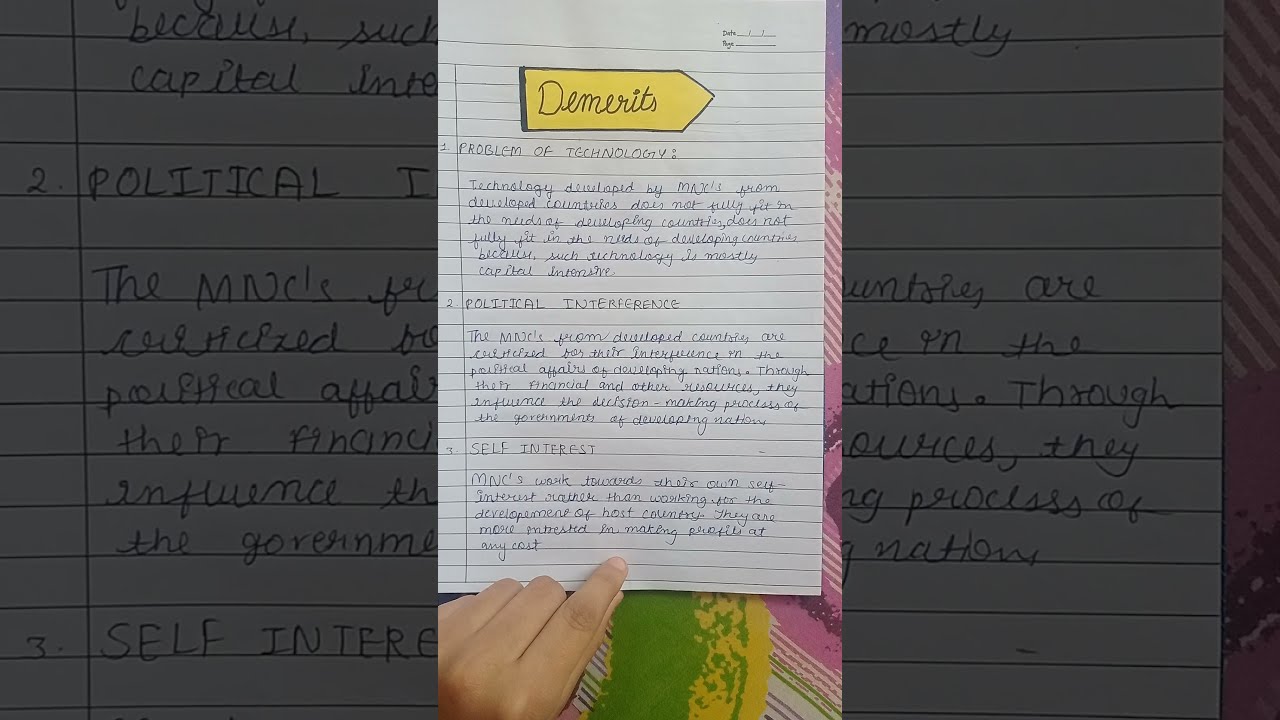 Date / /
Page
Demerits
1. PROBLEM OF TECHNOLOGY:
Technology developed by MNC's from
developed countries does not fully fit in
the needs of developing countries, does not
fully fit in the needs of developing countries
because, such technology is mostly
capital intensive
2. POLITICAL INTERFERENCE
The MNC's from developed countries are
criticized for their interference in the
political affairs of developing nations. Through
their financial and other resources, they
influence the decision-making process of
the governments of developing nations
3. SELF INTEREST
MNC's work towards their own self-
interest rather than working for the
developement of host country. They are
more intrested in making profits at
any cost